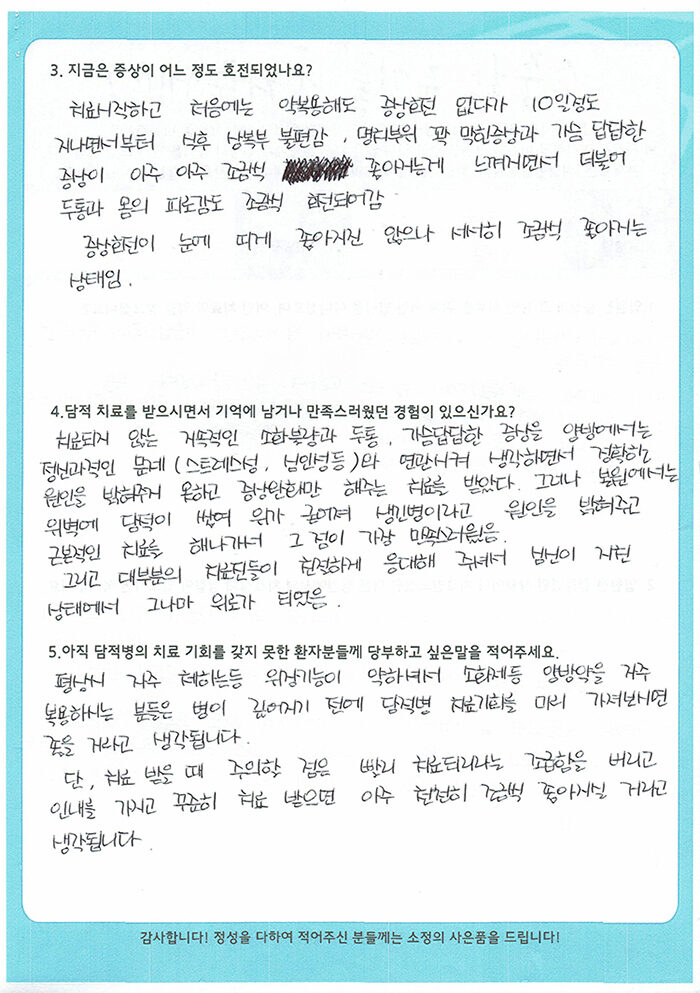 3. 지금은 증상이 어느 정도 호전되었나요?
치료시작하고 처음에는 약복용해도 증상호전 없다가 10일정도
지나면서부터 식후 상복부 불편감, 명치부위 꽉 막힌증상과 가슴 답답한
증상이 아주 아주 조금씩 좋아지는게 느껴지면서 더불어
두통과 몸의 피로감도 조금씩 호전되어감
증상호전이 눈에 띄게 좋아지진 않으나 서서히 조금씩 좋아지는
상태임.
4.담적 치료를 받으시면서 기억에 남거나 만족스러웠던 경험이 있으신가요?
치료되지 않는 지속적인 소화불량과 두통, 가슴답답한 증상을 양방에서는
정신과적인 문제(스트레스성, 심인성등)와 연관시켜 생각하면서 정확한
원인을 밝혀주지 못하고 증상완화만 해주는 치료를 받았다. 그러나 본원에서는
위벽에 담적이 쌓여 위가 굳어져 생긴병이라고 원인을 밝혀주고
근본적인 치료를 해나가서 그 점이 가장 만족스러웠음.
그리고 대부분의 치료진들이 친절하게 응대해 주셔서 심신이 지친
상태에서 그나마 위로가 되었음.
5.아직 담적병의 치료 기회를 갖지 못한 환자분들께 당부하고 싶은말을 적어주세요.
평상시 자주 체하는등 위장기능이 약하셔서 소화제등 양방약을 자주
복용하시는 분들은 병이 깊어지기 전에 담적병 치료기회를 미리 가져보시면
좋을 거라고 생각됩니다.
단, 치료 받을 때 주의할 점은 빨리 치료되리라는 조급함을 버리고
인내를 가지고 꾸준히 치료 받으면 아주 천천히 조금씩 좋아지실 거라고
생각됩니다.
감사합니다! 정성을 다하여 적어주신 분들께는 소정의 사은품을 드립니다!